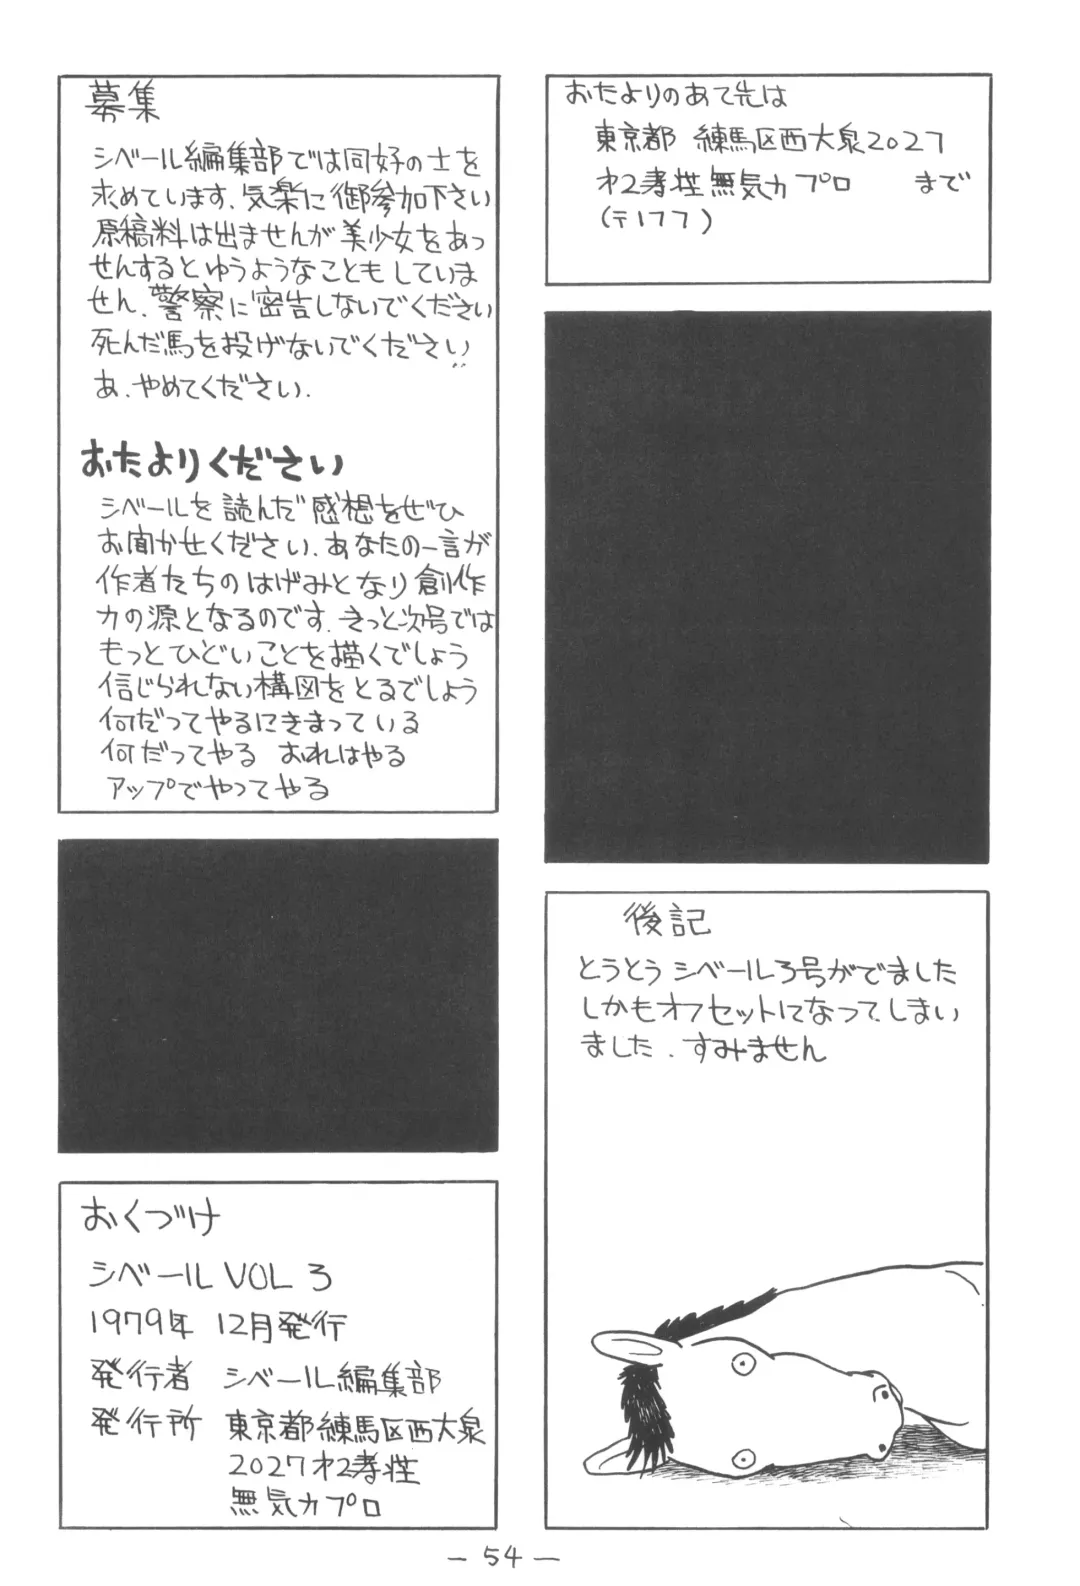 募集
シベール編集部では同好の士を
求めています。気楽に御参加下さい
原稿料は出ませんが美少女をあっ
せんするとゆうようなこともしていま
せん。警察に密告しないでください
死んだ馬を投げないでください
あ、やめてください。
おたよりください
シベールを読んだ感想をぜひ
お聞かせください。あなたの一言が
作者たちのはげみとなり創作
力の源となるのです。きっと次号では
もっとひどいことを描くでしょう
信じられない構図をとるでしょう
何だってやるにきまっている
何だってやる おれはやる
アップでやってやる
おくづけ
シベール VOL 3
1979年 12月発行
発行者 シベール編集部
発行所 東京都練馬区西大泉
2027 才2孝性
無気力プロ
おたよりのあて先は
東京都 練馬区西大泉2027
才2孝性無気力プロ まで
(〒177)
後記
とうとうシベール3号がでました
しかもオフセットになってしまい
ました。すみません
— 54 —